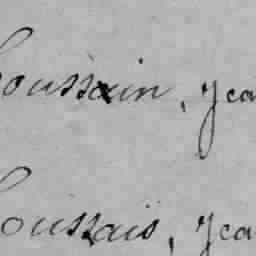 oussain, Jea
oussais, Jea